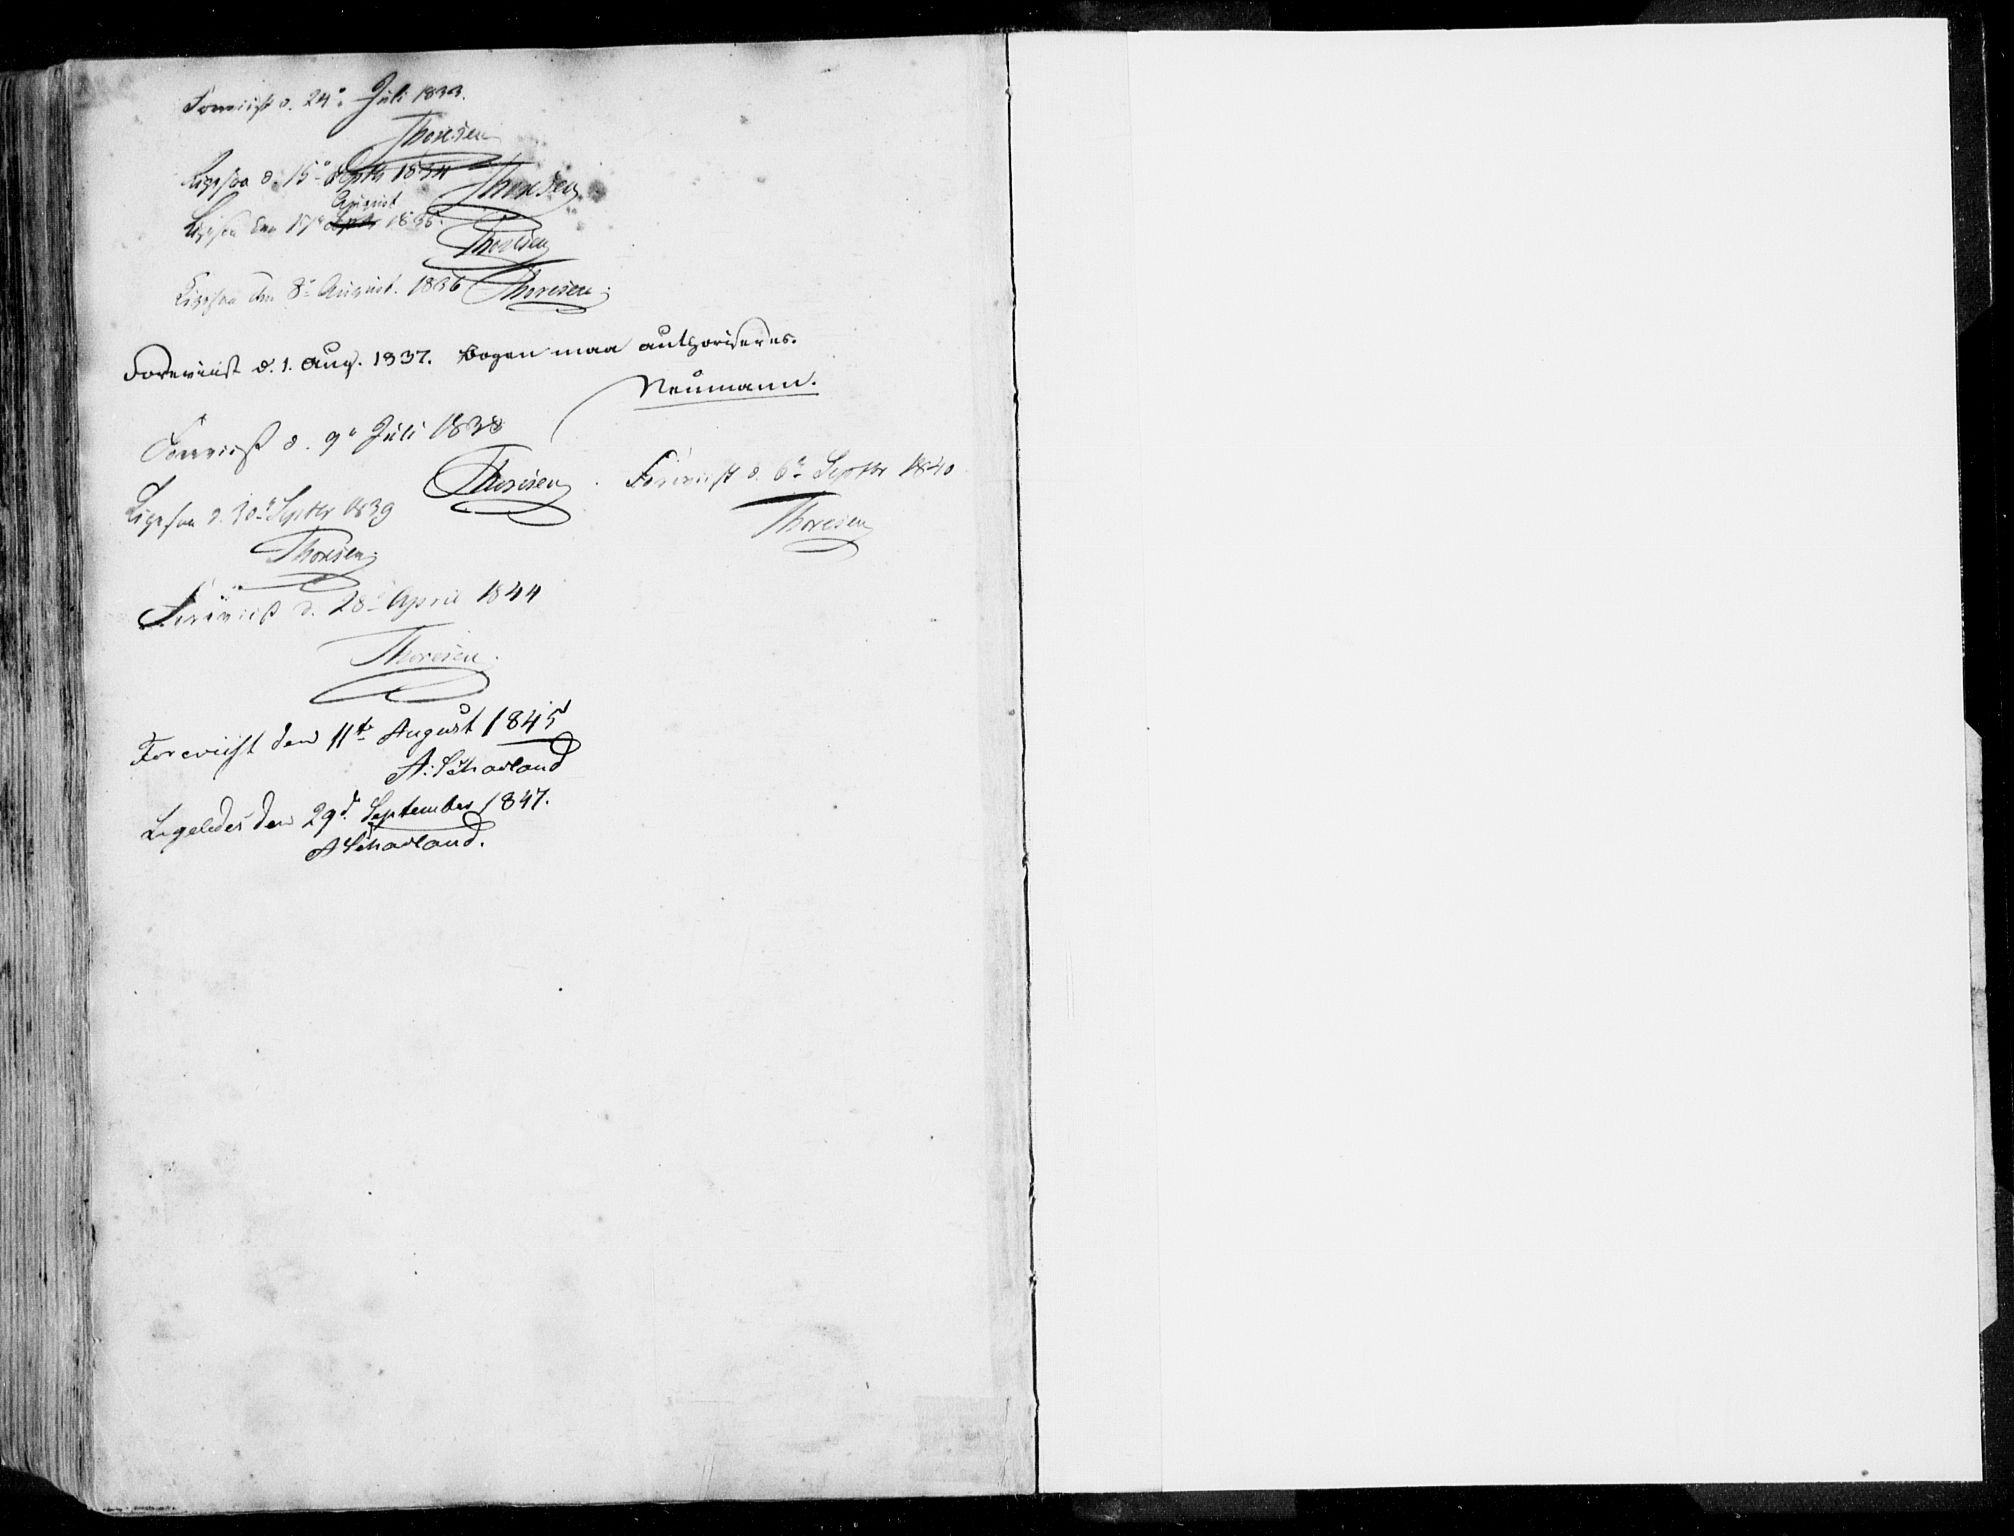 Foreviist d. 24de Juli 1833.
Thoresen
Ligesaa d. 15de Septbr 1834 Thoresen
August
Ligesaa den 17de Septbr 1835.
Thoresen
Ligesaa den 8de August. 1836 Thoresen.
Foreviist d. 1. Aug. 1837. Bogen maa authoriseres.
Neumann.
Foreviist d. 9de Juli 1838
Thoresen.
Foreviist d. 6te Septbr 1840
Thoresen
Ligesaa d. 30de Septbr 1839
Thoresen.
Foreviist d. 28de April 1844
Thoresen.
Foreviist den 11te August 1845
A: Scharland
Ligeledes den 29d. September 1847.
A Scharland.